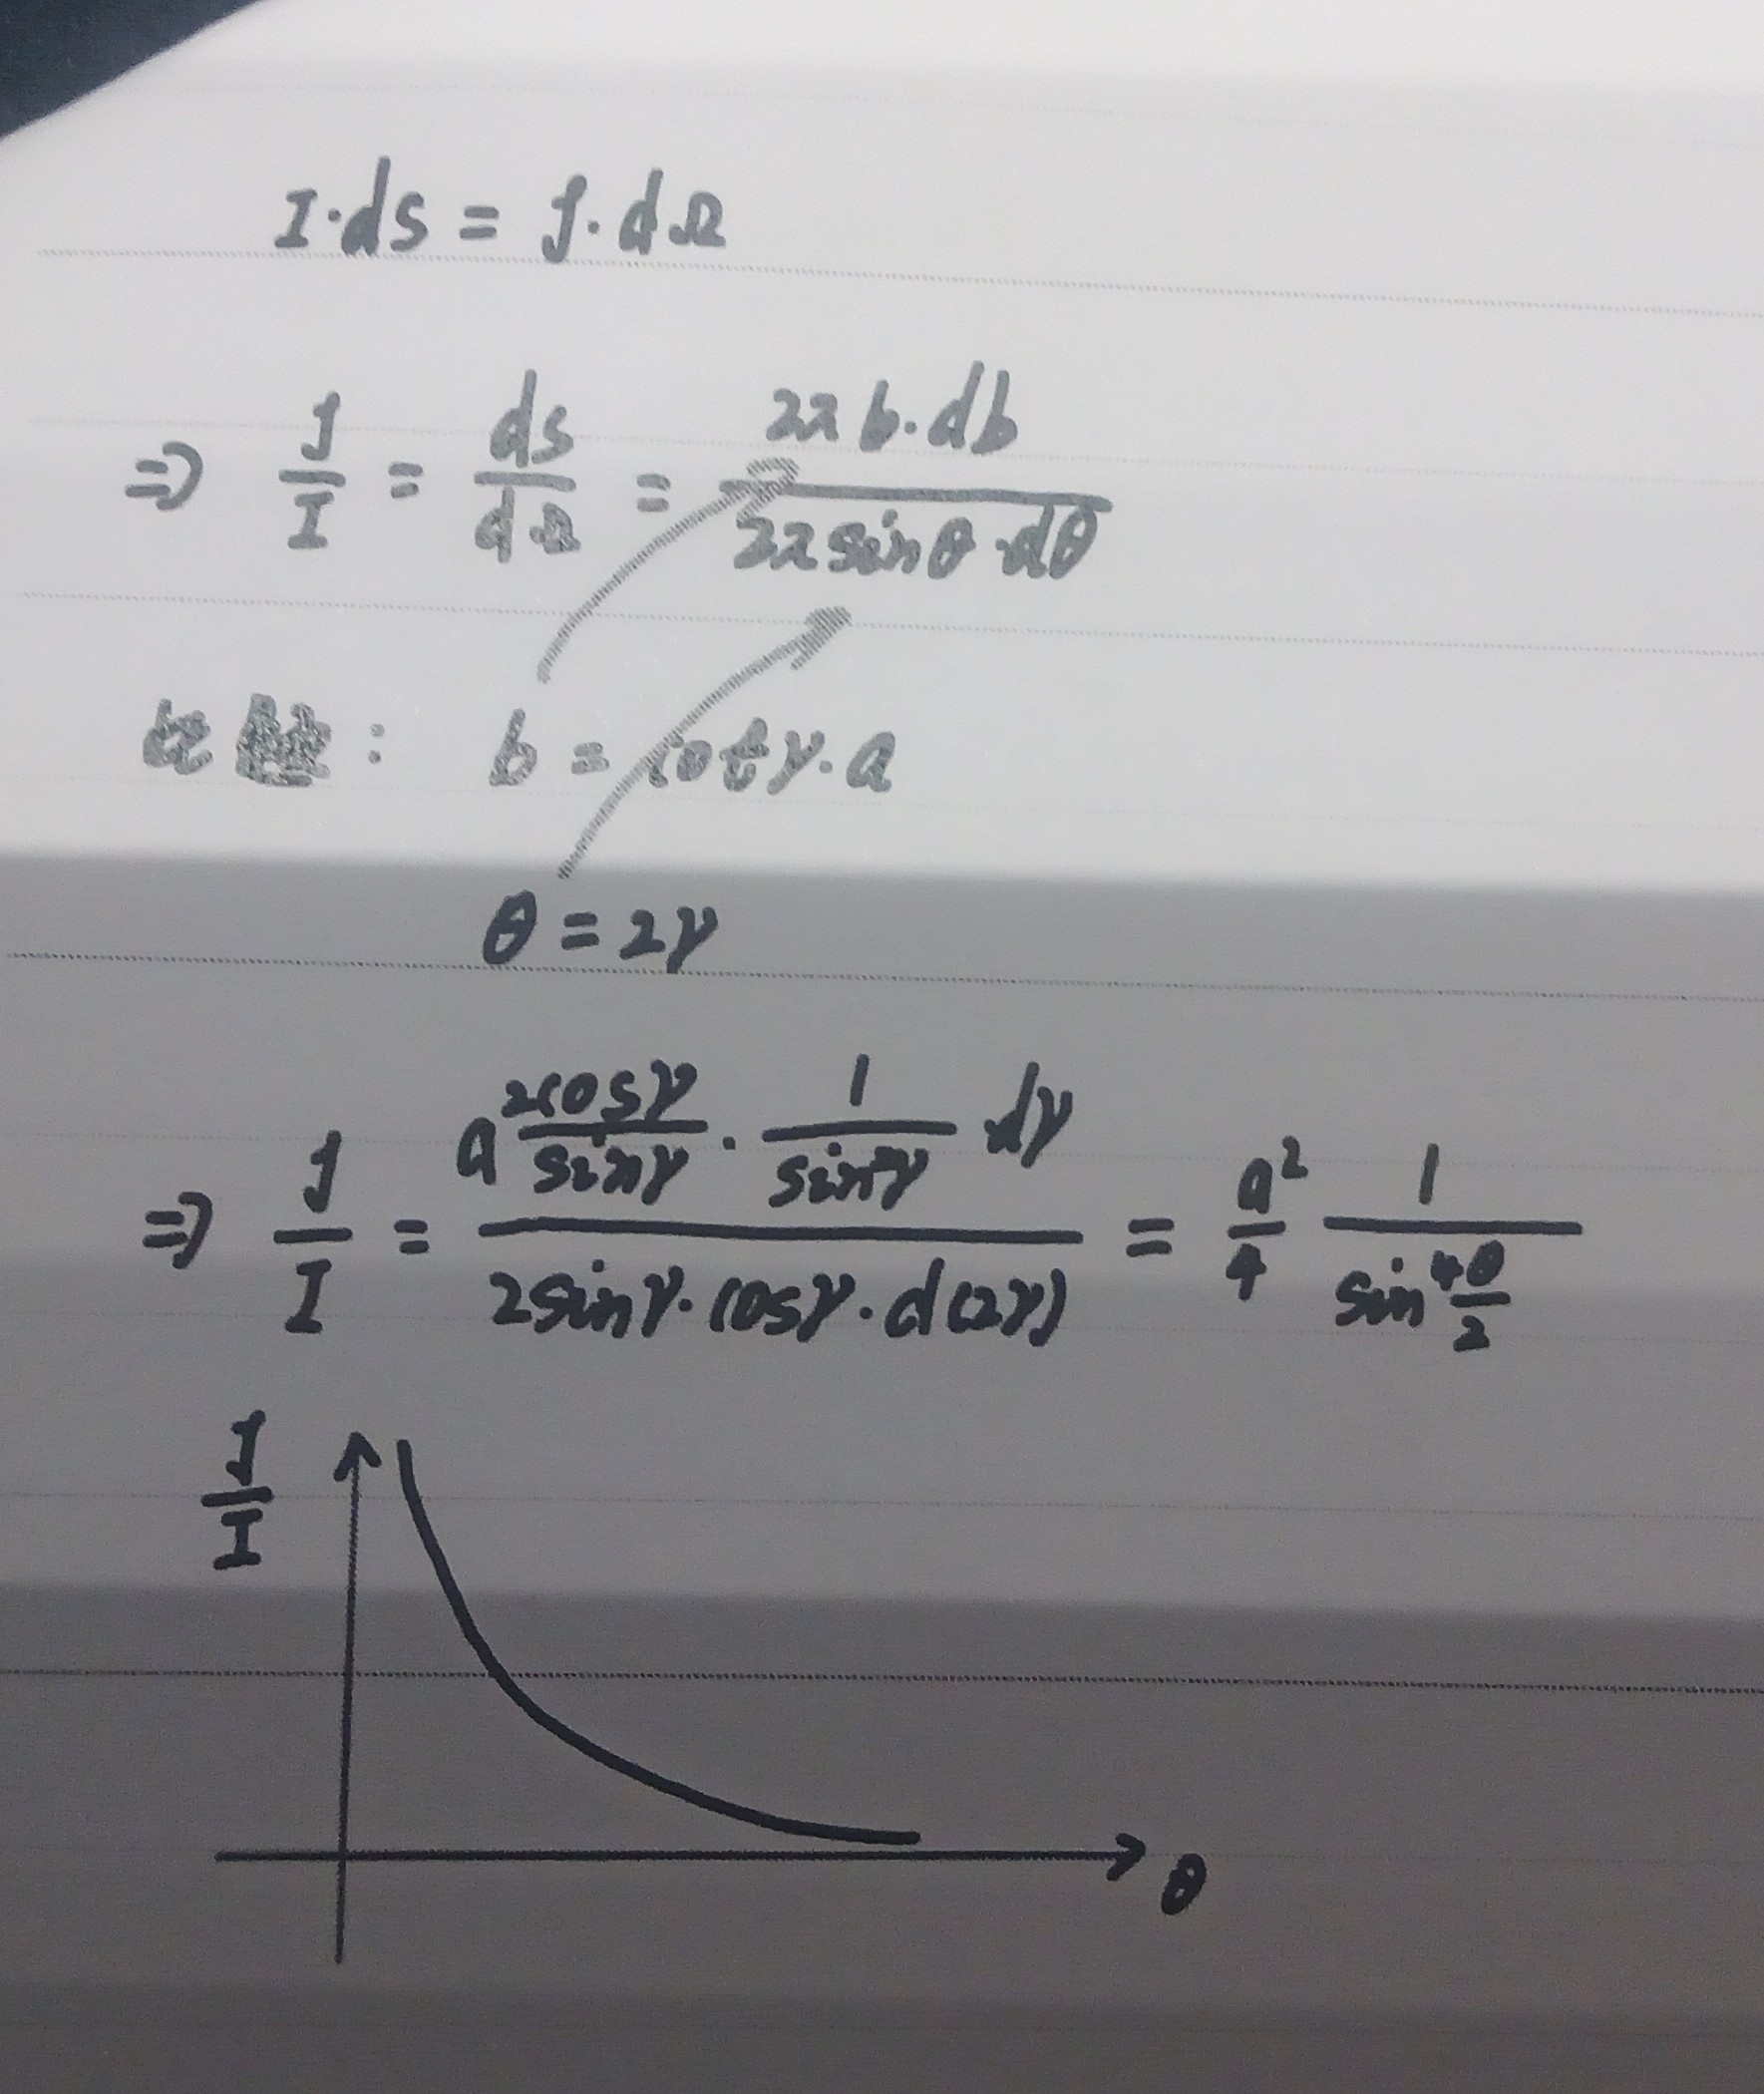 I·ds = J·dΩ
⇒ J/I = ds/dΩ = 2πb·db/2πsinθ·dθ
: b = cotγ·a
θ = 2γ
⇒ J/I = a² cosγ/sinγ · 1/sin²γ dγ / 2sinγ·cosγ·d(2γ) = a²/4 1/sin⁴θ/2
J/I
θ